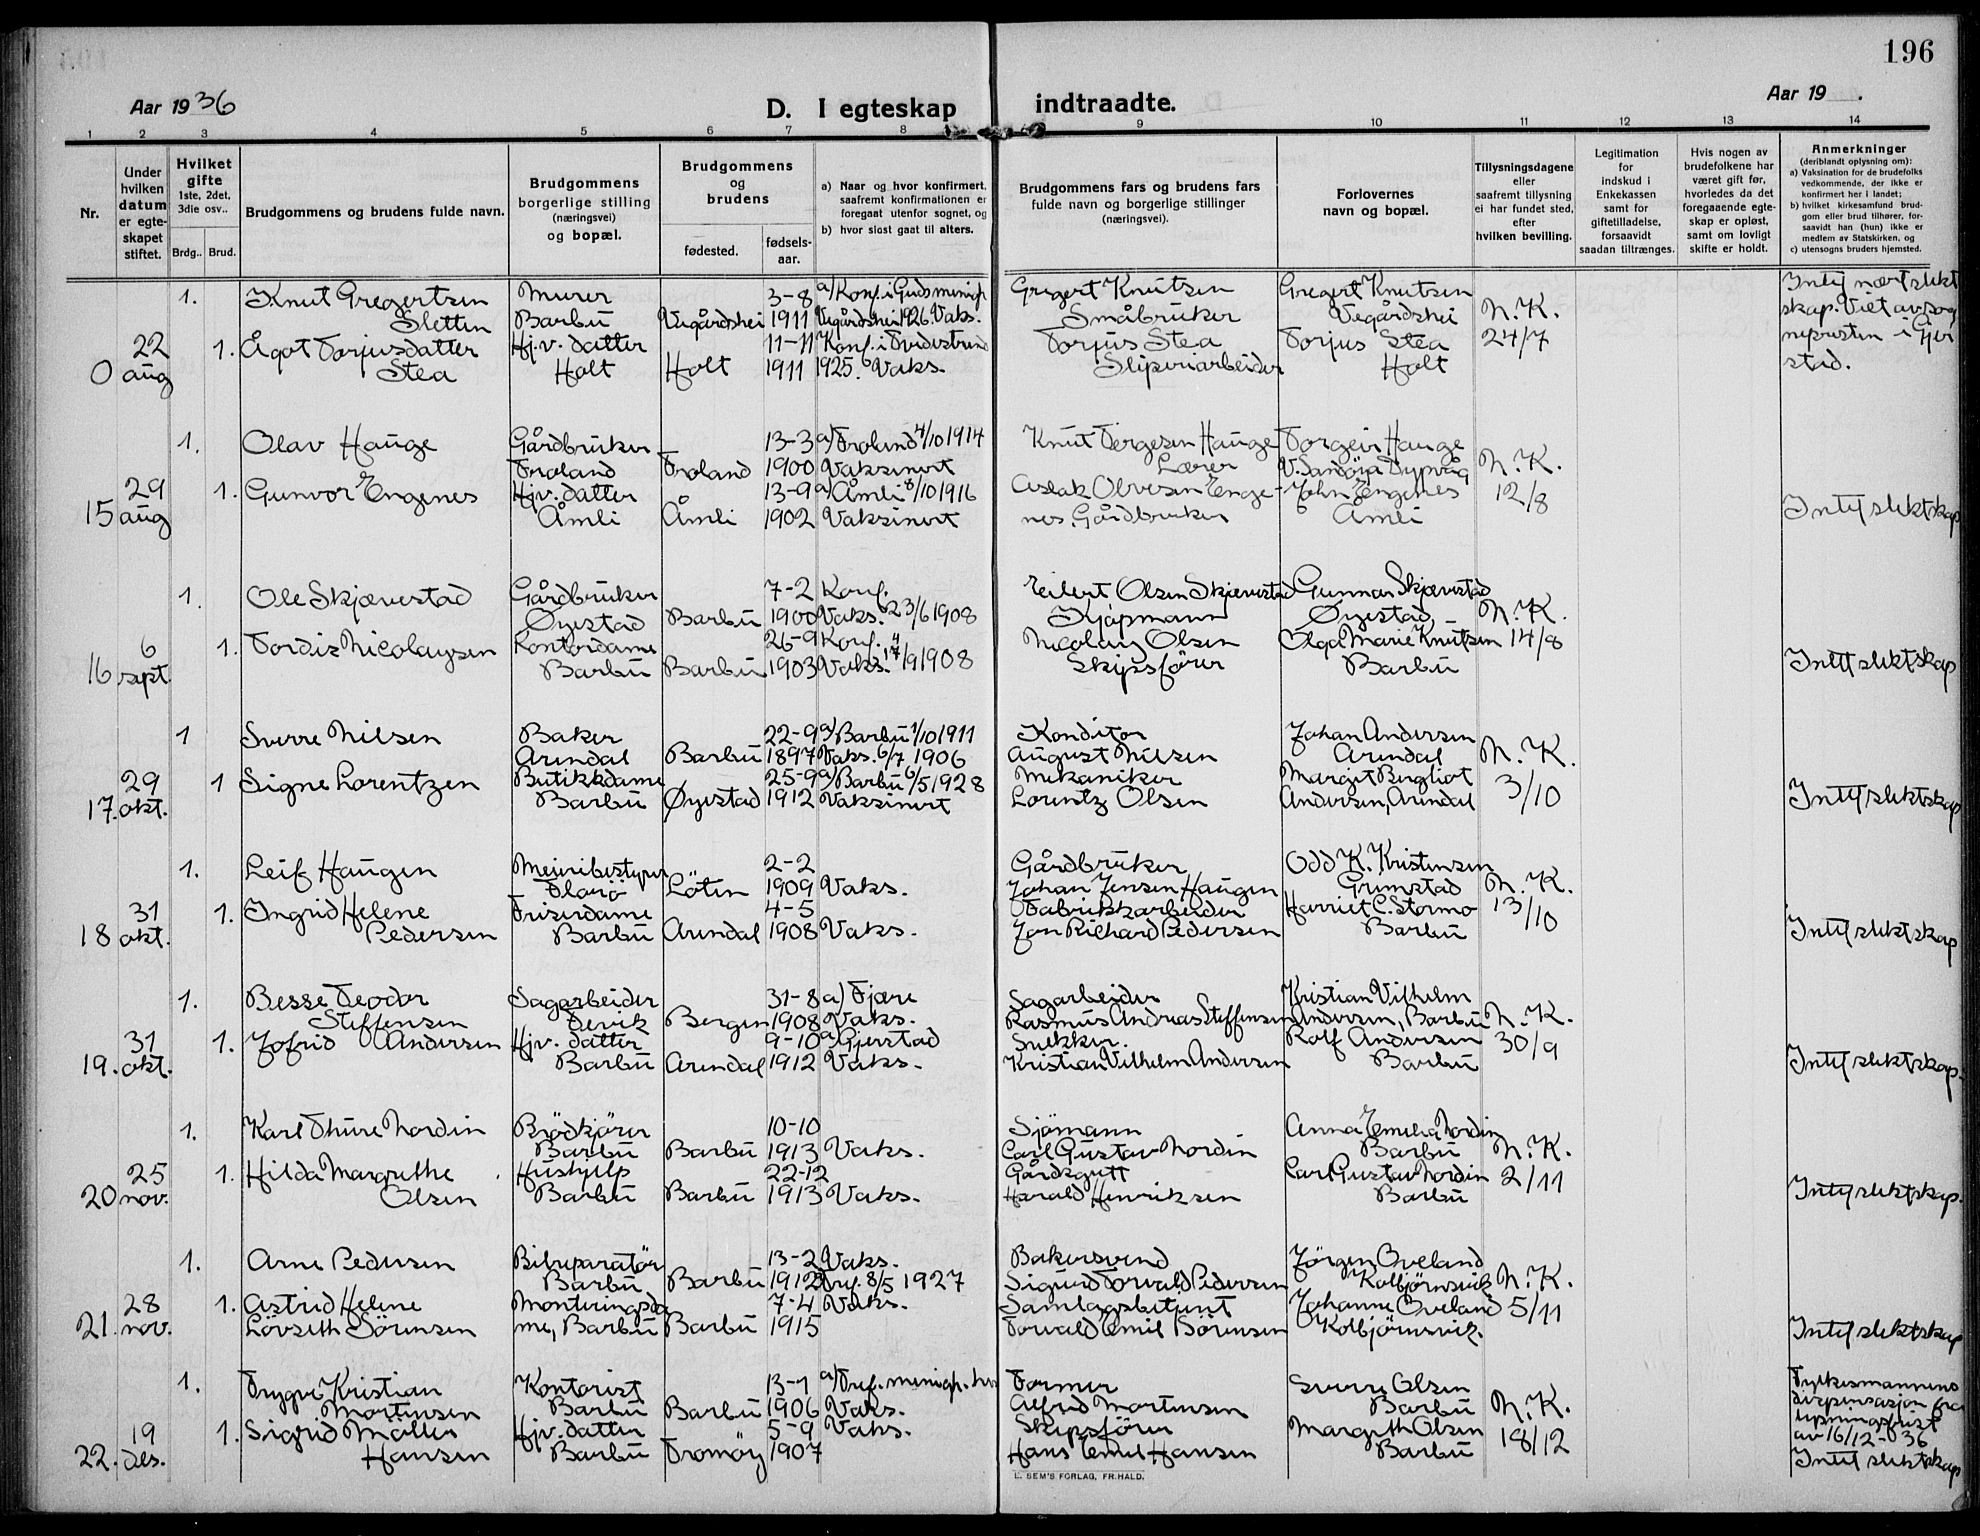 196
Aar 1936
D. I egteskap indtraadte.
Aar 19 .
1 2 3 4 5 6 7 8 9 10 11 12 13 14
Nr.
Under
hvilken
datum
er egte-
skapet
stiftet.
Hvilket
gifte
1ste, 2det,
3die osv..
Brdg.. Brud.
Brudgommens og brudens fulde navn.
Brudgommens
borgerlige stilling
(næringsvei)
og bopæl.
Brudgommens
og
brudens
fødested.
fødsels-
aar.
a) Naar og hvor konfirmert,
saafremt konfirmationen er
foregaat utenfor sognet, og
b) hvor sidst gaat til alters.
Brudgommens fars og brudens fars
fulde navn og borgerlige stillinger
(næringsvei).
Forlovernes
navn og bopæl.
Tillysningsdagene
eller
saafremt tillysning
ei har fundet sted,
efter
hvilken bevilling.
Legitimation
for
indskud i
Enkekassen
samt for
giftetilladelse,
forsaavidt
saadan tiltrænges.
Hvis nogen av
brudefolkene har
været gift før,
hvorledes da det
foregaaende egte-
skap er opløst,
samt om lovligt
skifte er holdt.
Anmerkninger
(deriblandt oplysning om):
a) Vaksination for de brudefolks
vedkommende, der ikke er
konfirmert her i landet;
b) hvilket kirkesamfund brud-
gom eller brud tilhører, for-
saavidt han (hun) ikke er
medlem av Statskirken, og
c) utensogns bruders hjemsted.
1. Knut Gregertsen Murer 3-8 a) Konf. i Guds menigh. Gregert Knutsen Gregert Knutsen Intet nært slekt
Sletten Barbu Vegårdshei 1911 Vegårdshei 1926. Vaks. Småbruker Vegårdshei N. K. skap. Viet av sog
22 1. Ågot Torjusdatter Hj. v. datter 11-11 Konf. i Tvedestrand Torjus Stea Torjus Stea 24/7 nepresten i Gjer
0 aug Stea Holt Holt 1911 1925. Vaks. Sliperiarbeider Holt stad.
1. Olav Hauge Gårdbruker 13-3 a) Froland 4/10 1914 Knut Tergesen Hauge Torgeir Hauge
Froland Froland 1900 Vaksinert Lærer V. Sandøya Dypvåg N. K.
29 1. Gunvor Engenes Hjv. datter 13-9 a) Åmli 8/10 1916 Aslak Olvesen Enge- John Engenes 12/8
15 aug Åmli Åmli 1902 Vaksinert nes, Gårdbruker Åmli Intet slektskap
1. Ole Skjævestad Gårdbruker 7-2 Konf. Eilert Olsen Skjævestad Gunnar Skjævestad
Øyestad Barbu 1900 Vaks. 23/6 1908 Kjøpmann Øyestad N. K.
6 1. Tordis Nicolaysen Kontordame 26-9 Konf. Nicolay Olsen Olga Marie Knutsen 14/8
16 sept. Barbu Barbu 1903 Vaks. 17/9 1908 Skipsfører Barbu Intet slektskap
1 Sverre Nilsen Baker 22-9 a) Barbu 1/10 1911 Konditor Johan Andersen
Arendal Barbu 1897 Vaks. 6/7 1906 August Nilsen Arendal N. K.
29 1 Signe Lorentzen Butikkdame 25-9 a) Barbu 6/5 1928 Mekaniker Margit Bergliot 3/10
17. okt. Barbu Øyestad 1912 Vaksinert Lorentz Olsen Andersen, Arendal Intet slektskap
1. Leif Haugen Meieribestyrer 2-2 Gårdbruker Odd K. Kristensen
Løten 1909 Vaks. Johan Jensen Haugen Grimstad N. K.
31 1. Ingrid Helene Friserdame 4-5 Fabrikkarbeider Harriet C. Stormo 13/10
18 okt. Pedersen Barbu Arendal 1908 Vaks. Jon Richard Pedersen Barbu Intet slektskap
1. Besse Teodor Sagarbeider 31-8 a) Fjære Sagarbeider Kristian Vilhelm
Steffensen Fevik Bergen 1908 Vaks. Rasmus Andreas Steffensen Andersen, Barbu N. K.
31 1. Jofrid Andersen Hjv. datter 9-10 a) Gjerstad Snekker. Rolf Andersen 30/9
19. okt. Barbu Arendal 1912 Vaks. Kristian Vilhelm Andersen Barbu Intet slektskap.
1. Karl Thure Nordin Brødkjører 10-10 Sjømann Anna Emelia Nordin
Barbu Barbu 1913 Vaks. Carl Gustav Nordin Barbu N. K.
25 1. Hilda Margrethe Hushjelp 22-12 Gårdsgutt Carl Gustav Nordin 2/11
20 nov. Olsen Barbu Barbu 1913 Vaks. Harald Henriksen Barbu Intet slektskap.
1. Arne Pedersen Bilreparatør 13-2 Vaks. Bakersvend Jørgen Oveland
Barbu Barbu 1912 8/5 1927 Sigurd Torvald Pedersen Kolbjørnsvik N. K.
28 1. Astrid Helene Monteringsda 7-4 Vaks. Samlagsbetjent Johanne Oveland 5/11
21. nov. Løvseth Sørensen me, Barbu Barbu 1915 Torvald Emil Sørensen Kolbjørnsvik. Intet slektskap
1. Trygve Kristian Kontorist 13-1 a) Tref. menigh. her Former Sverre Olsen Fylkesmannens
Mortensen Barbu Barbu 1906 Vaks. Alfred Mortensen Barbu N. K. dispensasjon fra
19 1. Sigrid Møller Hjv. datter 5-9 Vaks. Skipsfører Margith Olsen 18/12 lysningsfrist
av 16/12-36
22. des. Hansen Barbu Tromøy 1907 Hans Emil Hansen Barbu Intet slektskap
L. SEM'S FORLAG, FR.HALD.